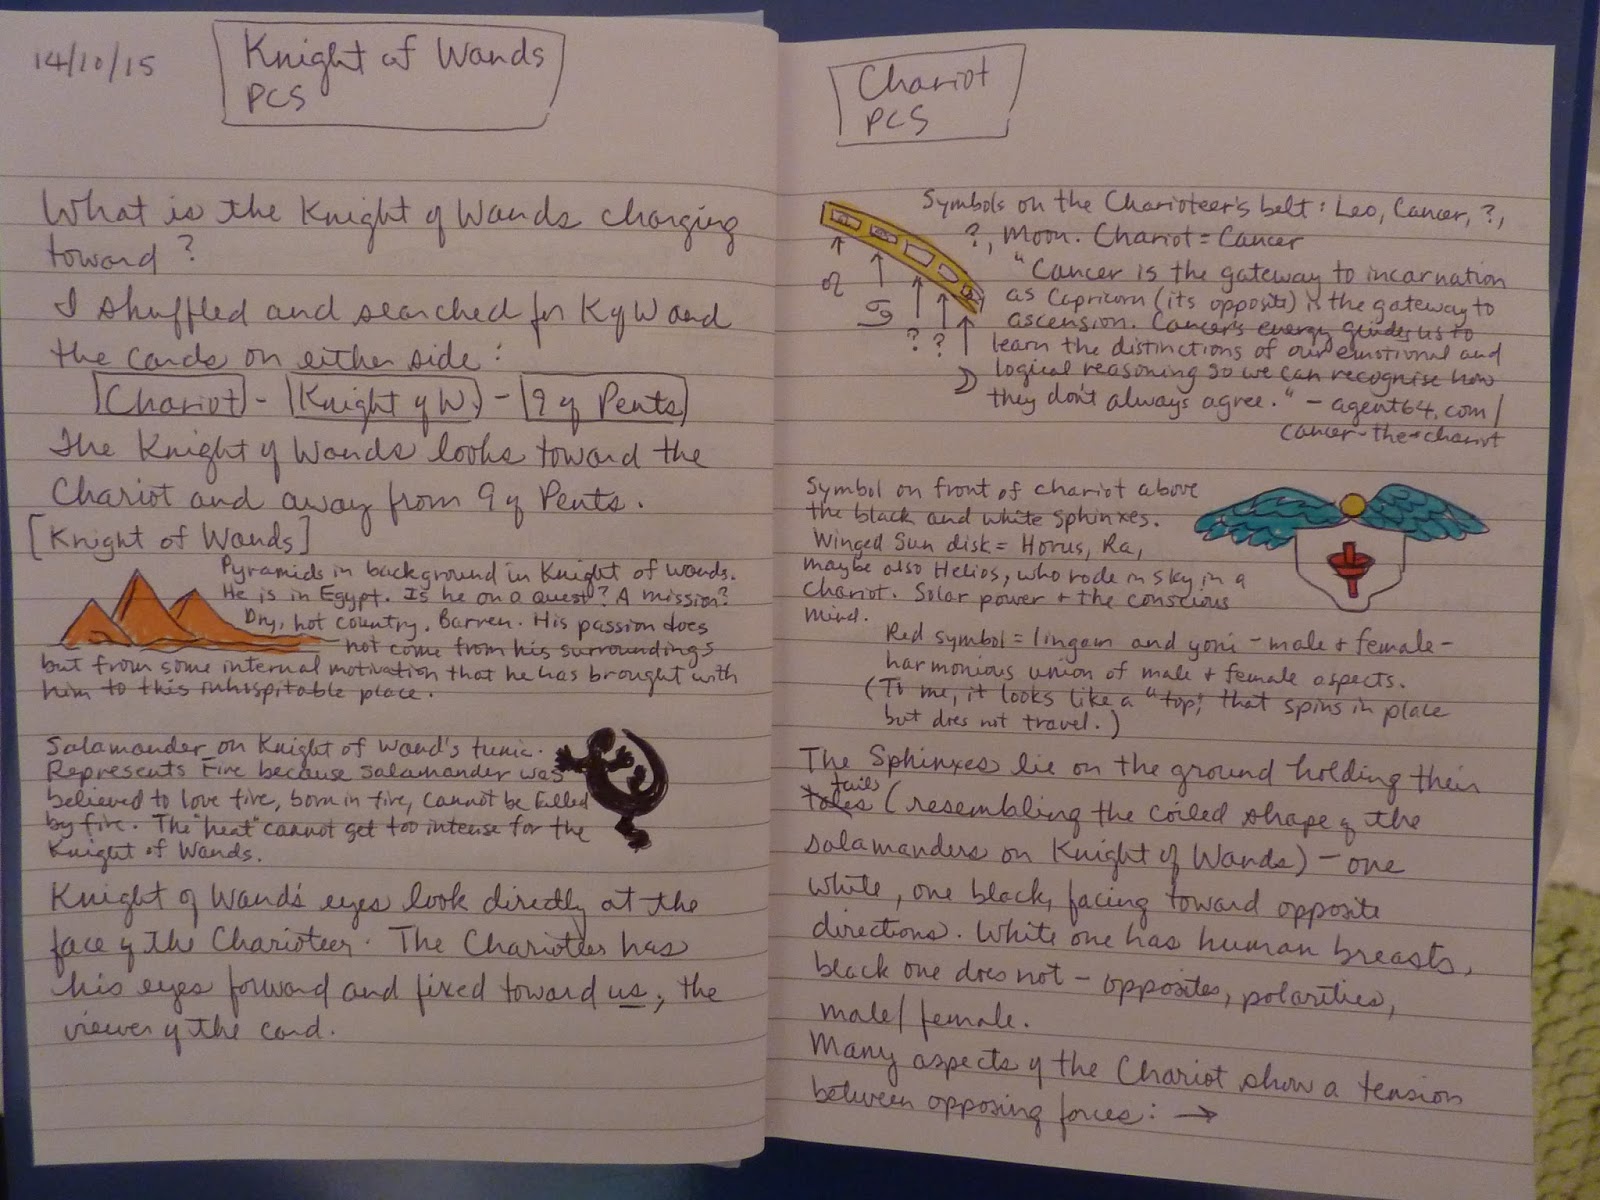 14/10/15
Knight of Wands
PCS
What is the Knight of Wands charging
toward?
I shuffled and searched for K of W and
the cards on either side:
Chariot - Knight of W. - 9 of Pents
The Knight of Wands looks toward the
Chariot and away from 9 of Pents.
[Knight of Wands]
Pyramids in background in Knight of Wands.
He is in Egypt. Is he on a quest? A mission?
Dry, hot country. Barren. His passion does
not come from his surroundings
but from some internal motivation that he has brought with
him to this inhospitable place.
Salamander on Knight of Wand's tunic.
Represents Fire because salamander was
believed to love fire, born in fire, cannot be killed
by fire. The "heat" cannot get too intense for the
Knight of Wands.
Knight of Wand's eyes look directly at the
face of the Charioteer. The Charioteer has
his eyes forward and fixed toward us, the
viewer of the card.
Chariot
PCS
Symbols on the Charioteer's belt: Leo, Cancer, ?,
?, Moon. Chariot = Cancer
"Cancer is the gateway to incarnation
as Capricorn (its opposite) is the gateway to
ascension. Cancer's energy guides us to
learn the distinctions of our emotional and
logical reasoning so we can recognise how
they don't always agree." - agent64.com/
cancer-the-chariot
♌ ♋ ? ? ☽
Symbol on front of chariot above
the black and white sphinxes.
Winged Sun disk = Horus, Ra,
maybe also Helios, who rode in sky in a
Chariot. Solar power + the conscious
mind.
Red symbol = lingam and yoni - male + female -
harmonious union of male + female aspects.
(To me, it looks like a "top," that spins in place
but does not travel.)
The Sphinxes lie on the ground holding their
tails (resembling the coiled shape of the
salamanders on Knight of Wands) - one
white, one black, facing toward opposite
directions. White one has human breasts,
black one does not - opposites, polarities,
male/female.
Many aspects of the Chariot show a tension
between opposing forces: →